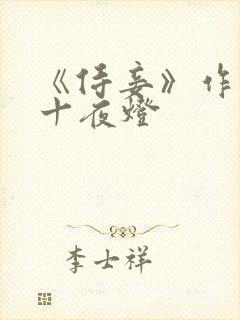 《侍妾》作
十夜燈
李士祥